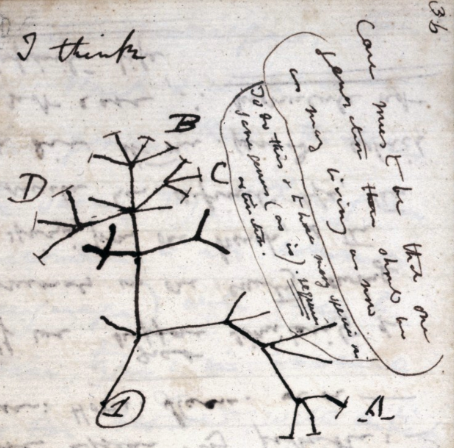 36
I think
B
C
D
A
1
Case must be that one
generation then should be
as many living as now
To do this & to have many species in
same genus (as is). requires
extinction.